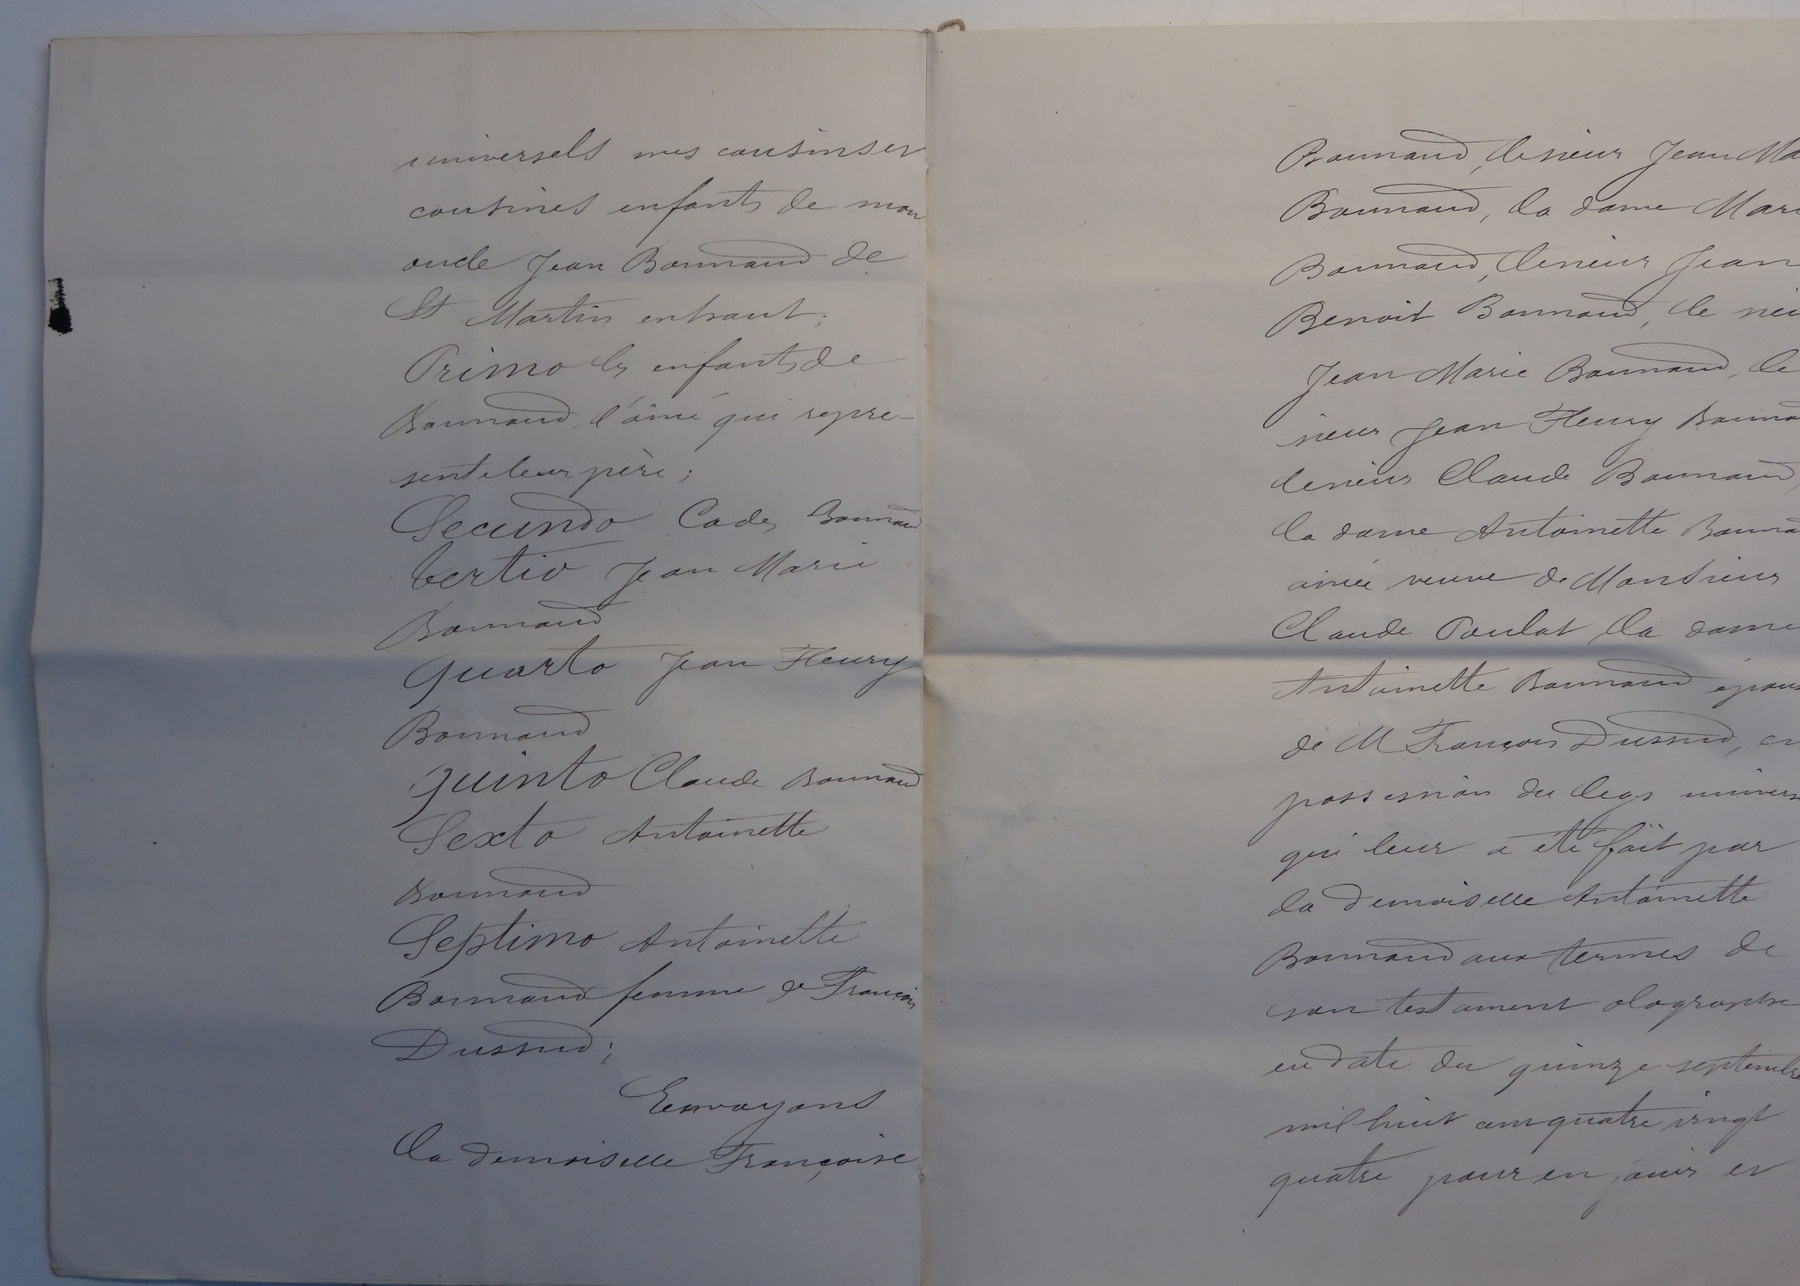 universels mes cousins et
cousines enfants de mon
oncle Jean Bonnand de
St Martin entraut;
Primo les enfants de
Bonnand, l'aîné qui repré-
sente leur père;
Secundo Cadet Bonnand
tertio Jean Marie
Bonnand
quarto Jean Fleury
Bonnand
quinto Claude Bonnand
Sexto Antoinette
Bonnand
Septimo Antoinette
Bonnand femme de François
Dussud;
Envoyons
la demoiselle Françoise
Bonnand, le sieur Jean Ma
Bonnand, la dame Mari
Bonnand, le sieur Jean
Benoit Bonnand, le sieu
Jean Marie Bonnand, le
sieur Jean Fleury Bonna
le sieur Claude Bonnand,
la dame Antoinette Bonna
ainée veuve de Monsieur
Claude Poulat, la dame
Antoinette Bonnand épous
de M François Dussud, en
possession du legs univers
qui leur a été fait par
la demoiselle Antoinette
Bonnand aux termes de
son testament olographe
en date du quinze septembre
mil huit cent quatre vingt
quatre pour en jouir et